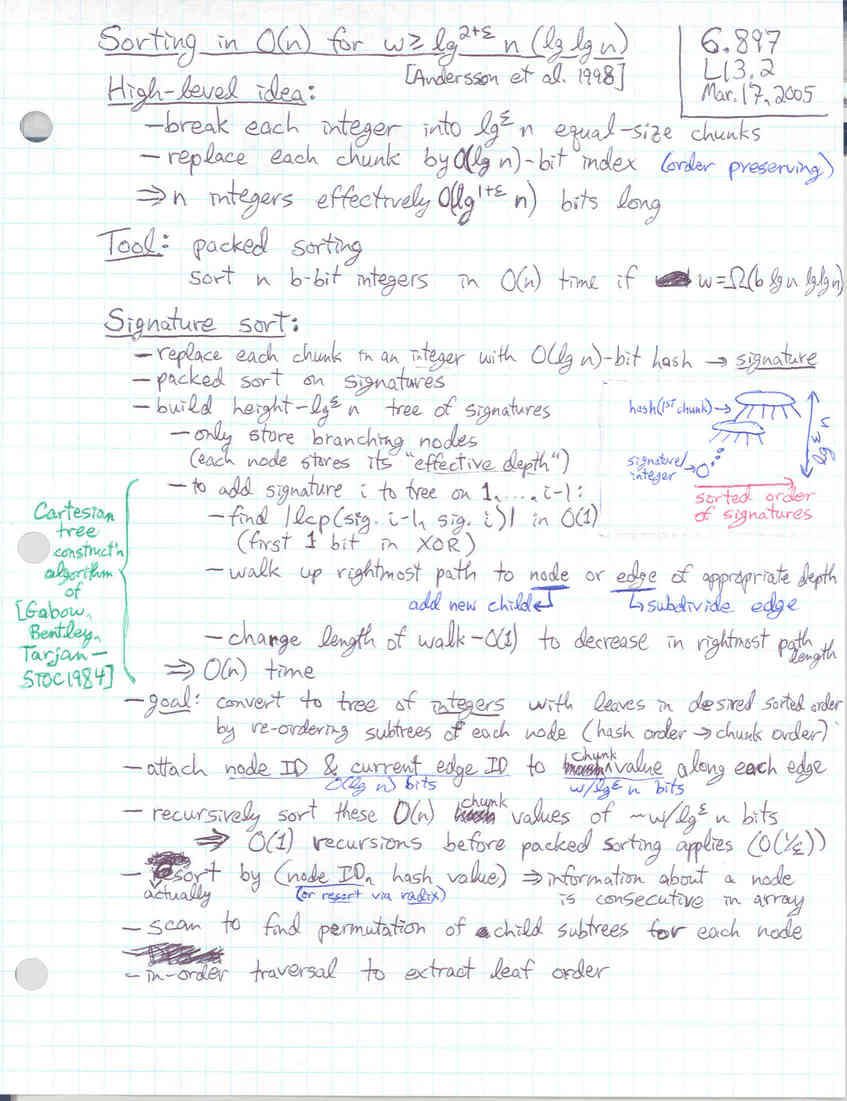 Sorting in O(n) for w ≥ lg^{2+ε} n (lg lg n)
[Andersson et al. 1998]
6.897
L13.2
Mar. 17, 2005
High-level idea:
— break each integer into lg^ε n equal-size chunks
— replace each chunk by O(lg n)-bit index (order preserving)
⇒ n integers effectively O(lg^{1+ε} n) bits long
Tool: packed sorting
sort n b-bit integers in O(n) time if w = Ω(b lg n lg lg n)
Signature sort:
— replace each chunk in an integer with O(lg n)-bit hash → signature
— packed sort on signatures
— build height-lg^ε n tree of signatures
— only store branching nodes
(each node stores its "effective depth")
hash(1ST chunk) →
signature/
integer →
lg^ε n
sorted order
of signatures
— to add signature i to tree on 1, ..., i-1:
— find |lcp(sig. i-1, sig. i)| in O(1)
(first 1 bit in XOR)
— walk up rightmost path to node or edge of appropriate depth
add new child ↵
↳ subdivide edge
— change length of walk - O(1) to decrease in rightmost path
length
⇒ O(n) time
Cartesian
tree
construct'n
algorithm
of
[Gabow,
Bentley,
Tarjan —
STOC 1984]
— goal: convert to tree of integers with leaves in desired sorted order
by re-ordering subtrees of each node (hash order → chunk order)
— attach node ID & current edge ID to chunk value along each edge
O(lg n) bits
w/lg^ε n bits
— recursively sort these O(n) chunk values of ~w/lg^ε n bits
⇒ O(1) recursions before packed sorting applies (O(1/ε))
— actually sort by (node ID, hash value) ⇒ information about a node
(or resort via radix)
is consecutive in array
— scan to find permutation of child subtrees for each node
— in-order traversal to extract leaf order